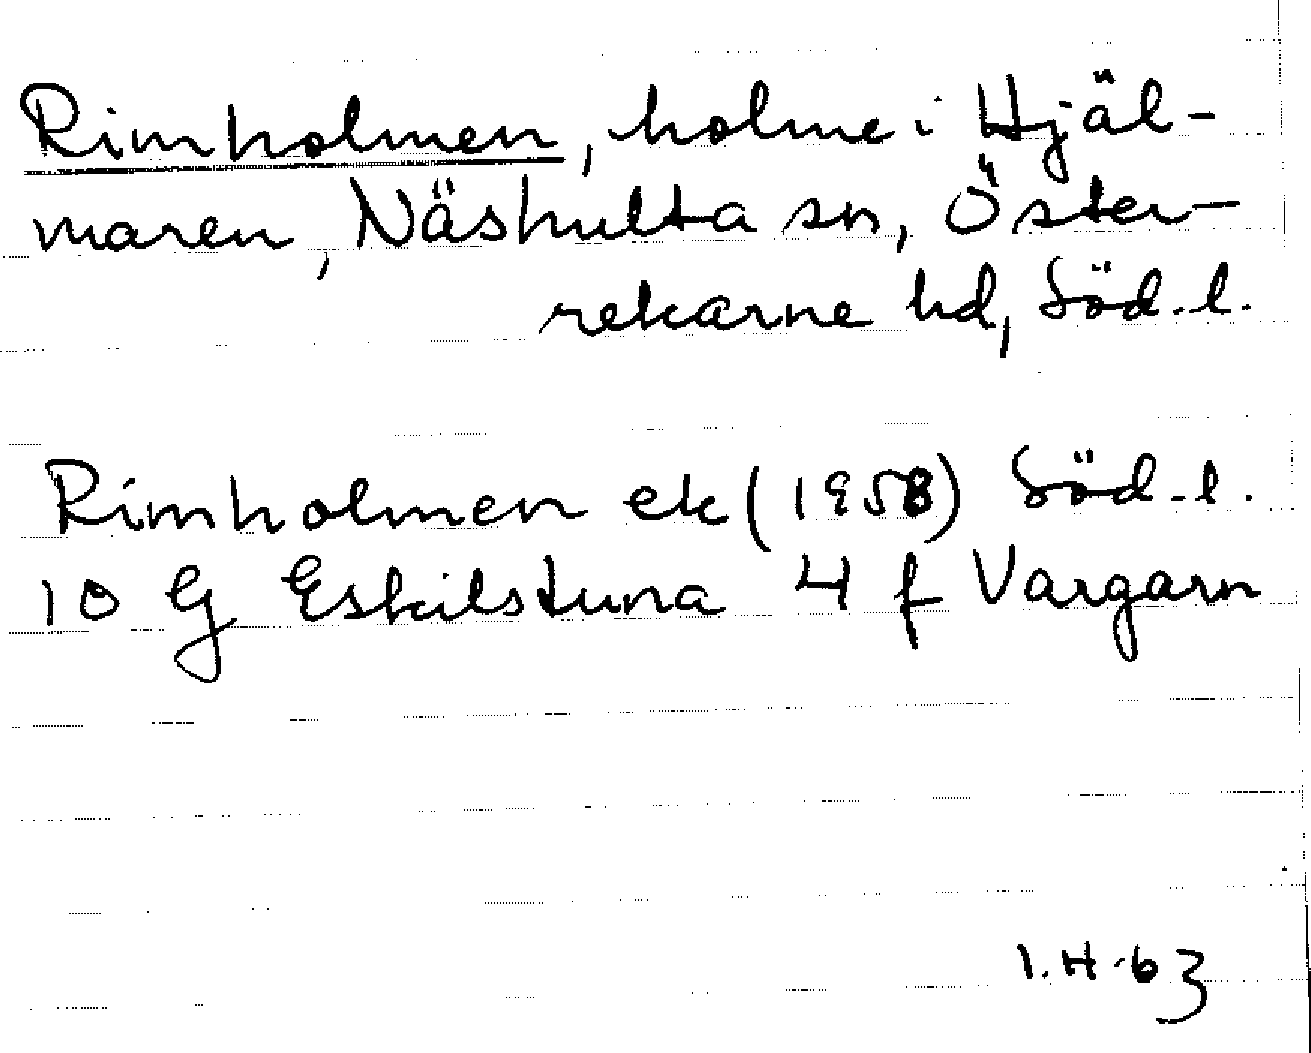 Rimholmen, holme i Hjäl-
maren, Näshulta sn, Öster-
rekarne hd, Söd.l.
Rimholmen ek (1958) Söd.l.
10 G Eskilstuna 4 f Vargarn
I.H.63